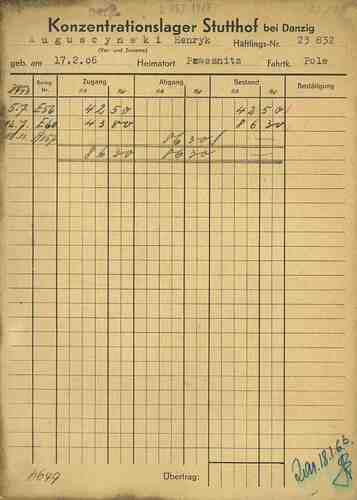 Konzentrationslager Stutthof bei Danzig
Auguscynski Henryk Häftlings-Nr. 23 832
(Vor- und Zuname)
geb. am 17.2.06 Heimatort Praesnitz Fahrtk. Pole
Beleg Nr. Zugang Abgang Bestand Bestätigung
RM Rpf RM Rpf RM Rpf
5.7. E56 42 50 42 50
12.7. E60 43 80 86 30
86 30 —
86 30 86 30 —
Übertrag: